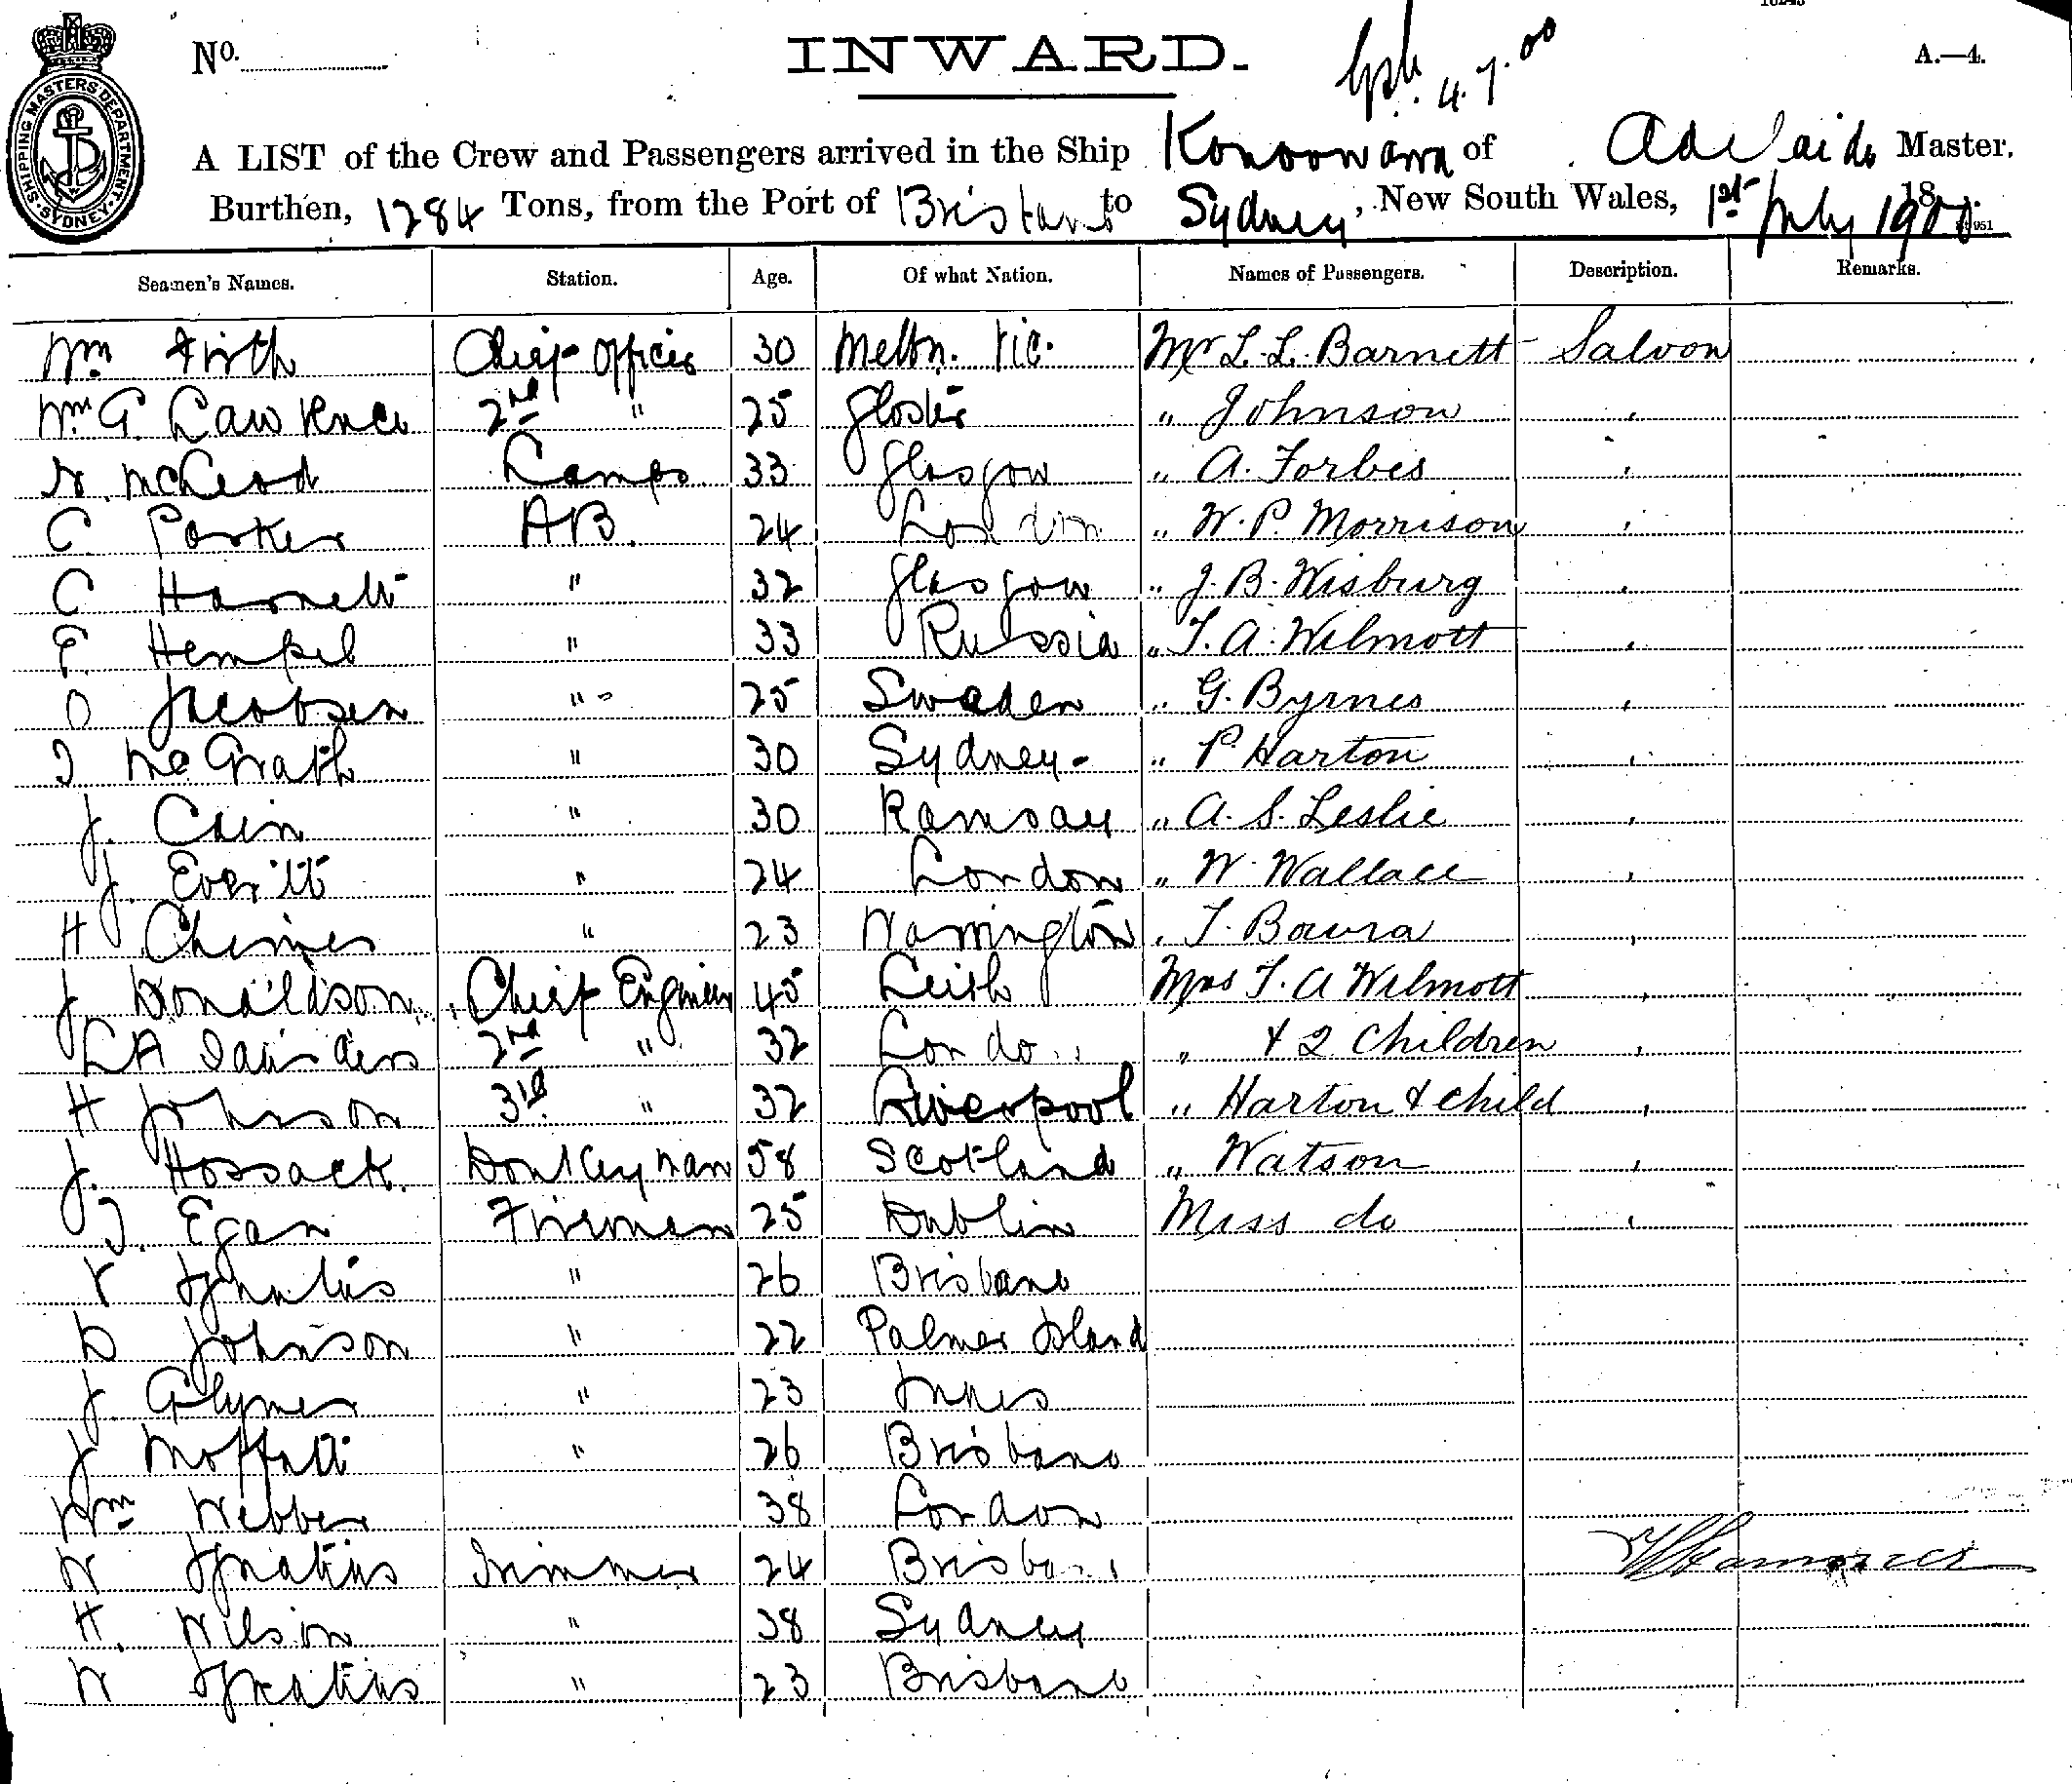 No.
INWARD.
4.7.00
A.—4.
SHIPPING MASTERS DEPARTMENT · SYDNEY ·
A LIST of the Crew and Passengers arrived in the Ship Konoowarra of Adelaide Master,
Burthen, 1284 Tons, from the Port of Brisbane to Sydney, New South Wales, 1st July 1900
Seamen's Names. Station. Age. Of what Nation. Names of Passengers. Description. Remarks.
Wm Firth Chief Officer 30 Melbn. Vic. Mr L. L. Barnett Saloon
Wm G. Lawrence 2nd " 25 Gloster " Johnson "
N. McLeod Lamps 33 Glasgow " A. Forbes "
C. Parker AB. 24 London " W. P. Morrison "
C Harnett " 32 Glasgow " J. B. Wisburg "
E. Hempel " 33 Russia " T. A. Wilmott "
O Jacobsen " 25 Sweden " G. Byrnes "
J McGrath " 30 Sydney " P. Harton "
J. Cain " 30 Ramsay " A. S. Leslie "
J. Everitt " 24 London " W. Wallace "
H Chesmes " 23 Warrington " T. Boura "
J. Donaldson Chief Engineer 45 Leith Mrs T. A Wilmott "
LA Saunders 2nd " 32 London " & 2 Children "
H Johnson 3rd " 32 Liverpool " Harton & Child "
J. Hossack. Donkeyman 58 Scotland " Watson "
J. Egan Firemen 25 Dublin Miss do "
V Ignatius " 26 Brisbane
D Johnson " 22 Palmer Island
J. Glymer " 23
J Moffatt " 26 Brisbane
Wm Webber 38 London
W Ignatius Trimmer 24 Brisbane
H. Wilson " 38 Sydney
W Ignatius " 23 Brisbane